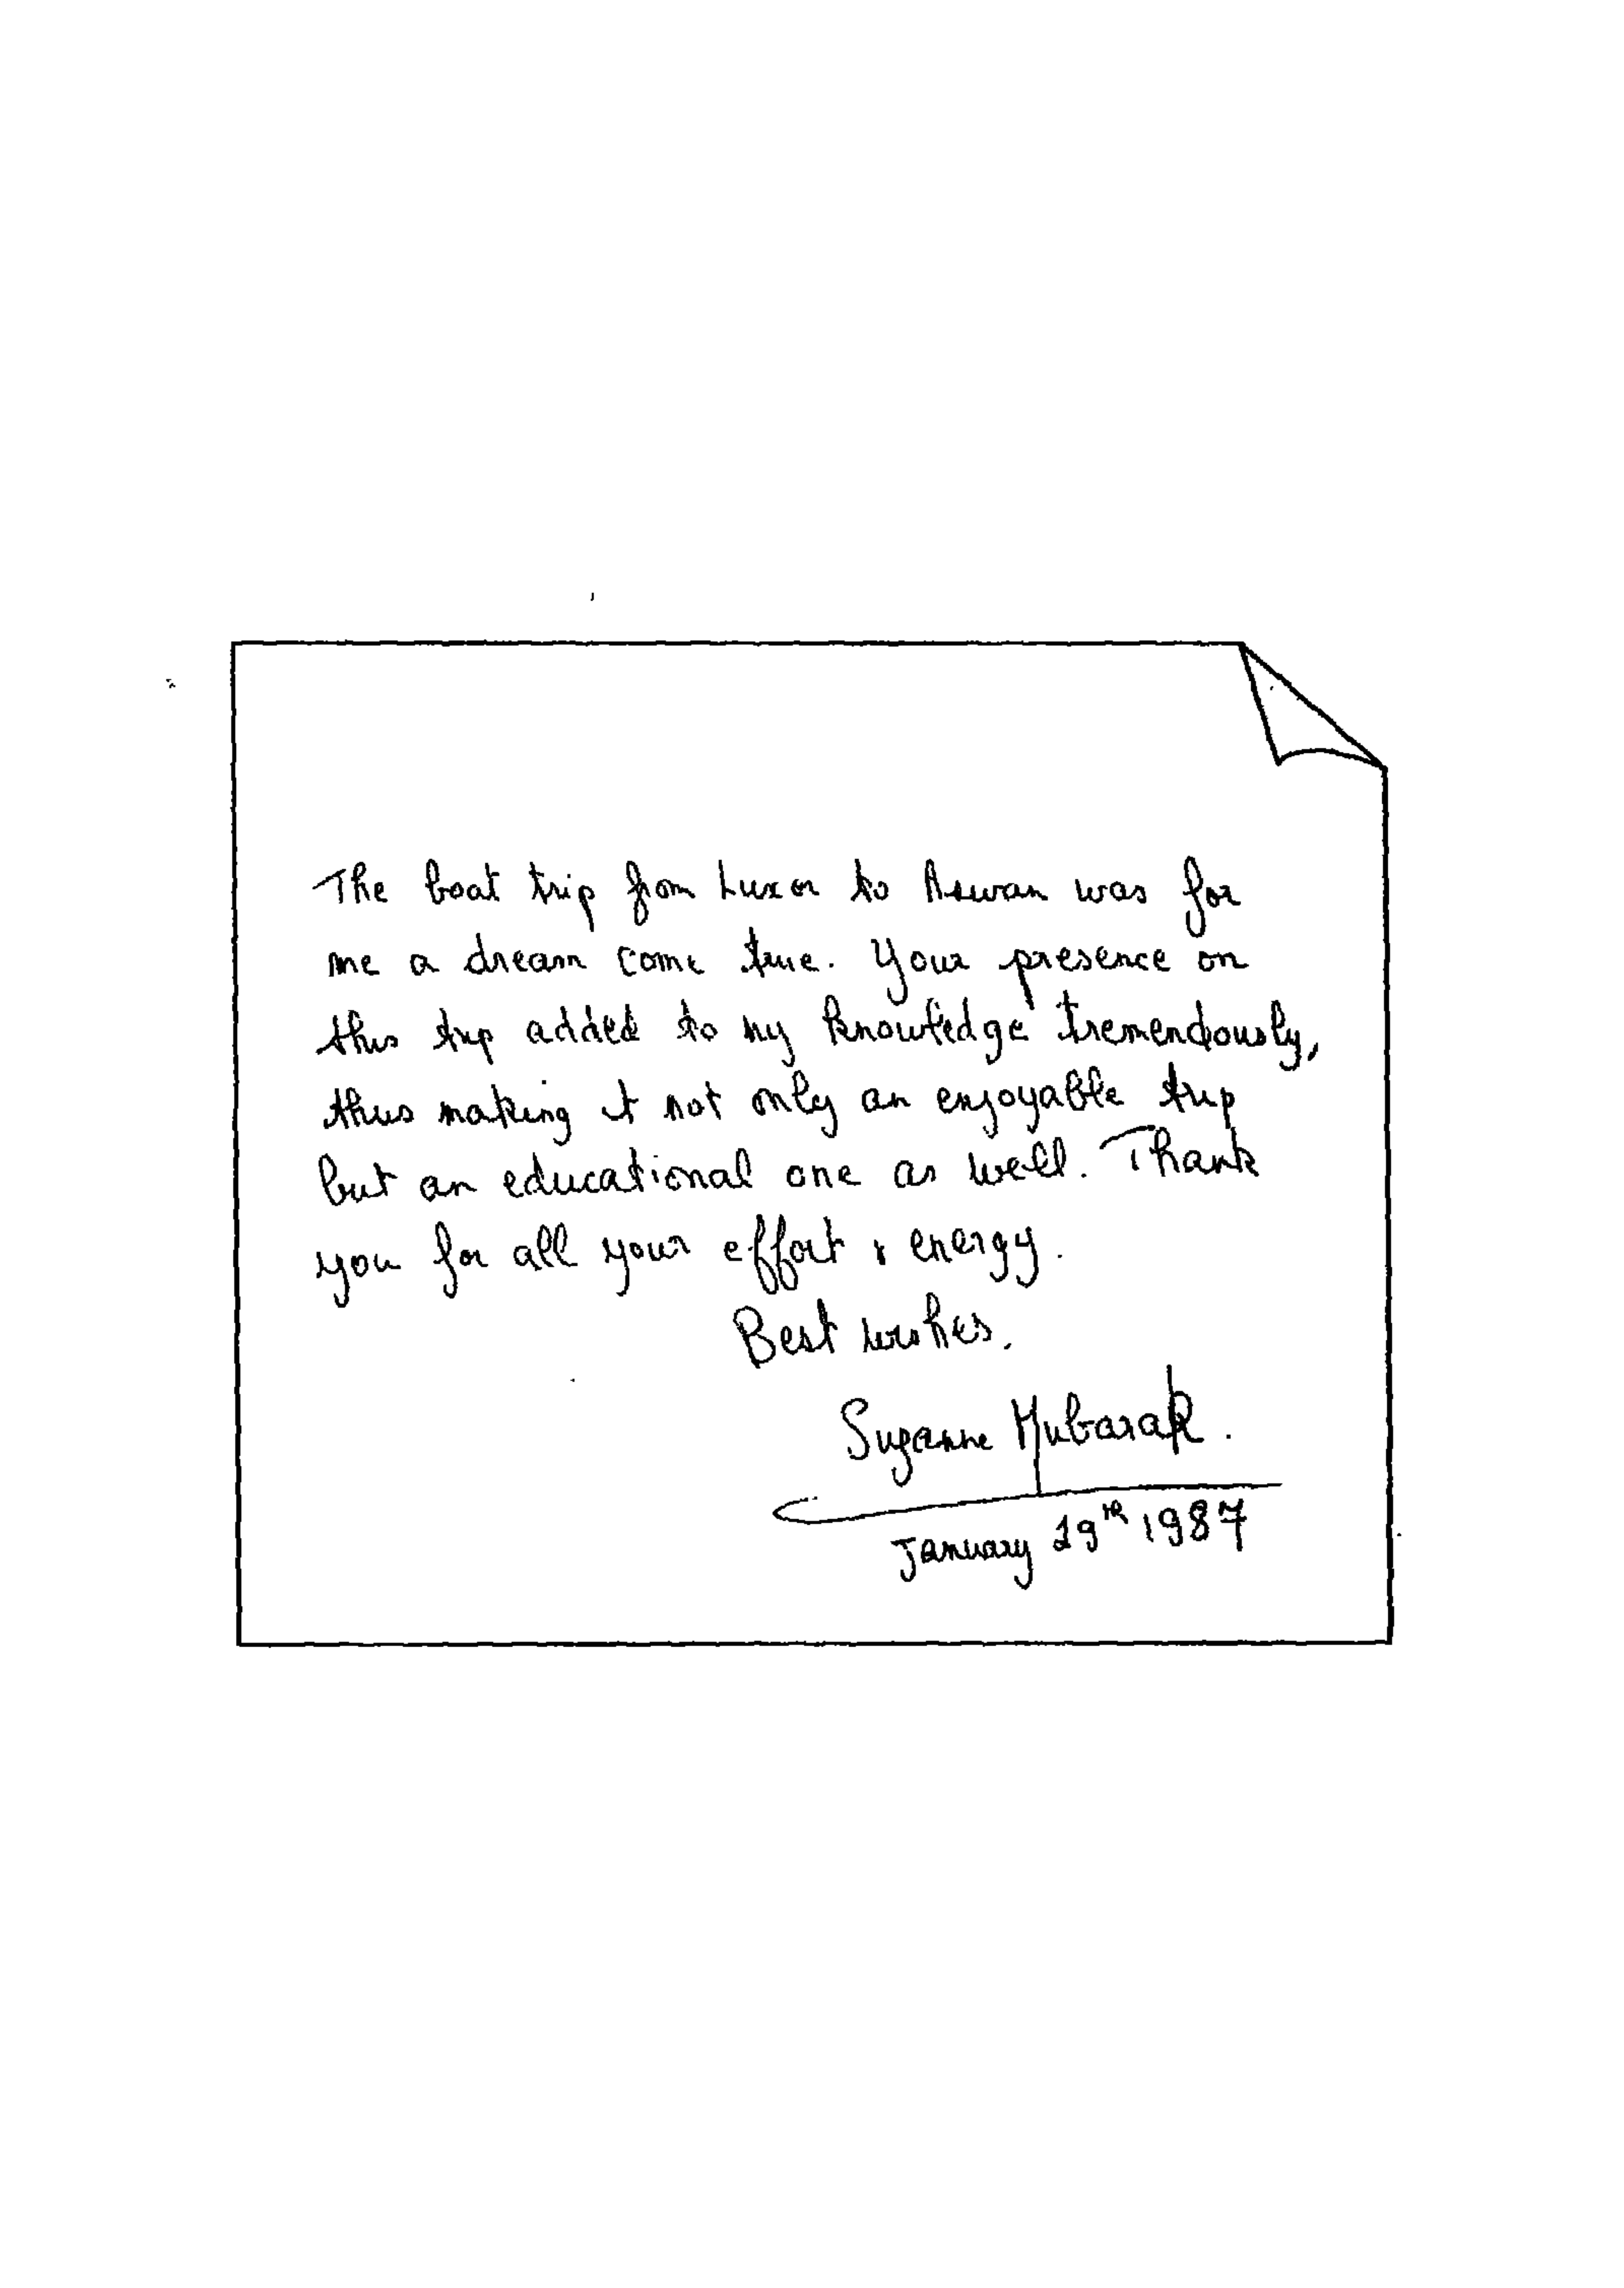 The boat trip from Luxor to Aswan was for
me a dream come true. Your presence on
this trip added to my knowledge tremendously,
thus making it not only an enjoyable trip
but an educational one as well. Thank
you for all your effort & energy.
Best wishes.
Suzanne Mubarak.
January 29th 1987